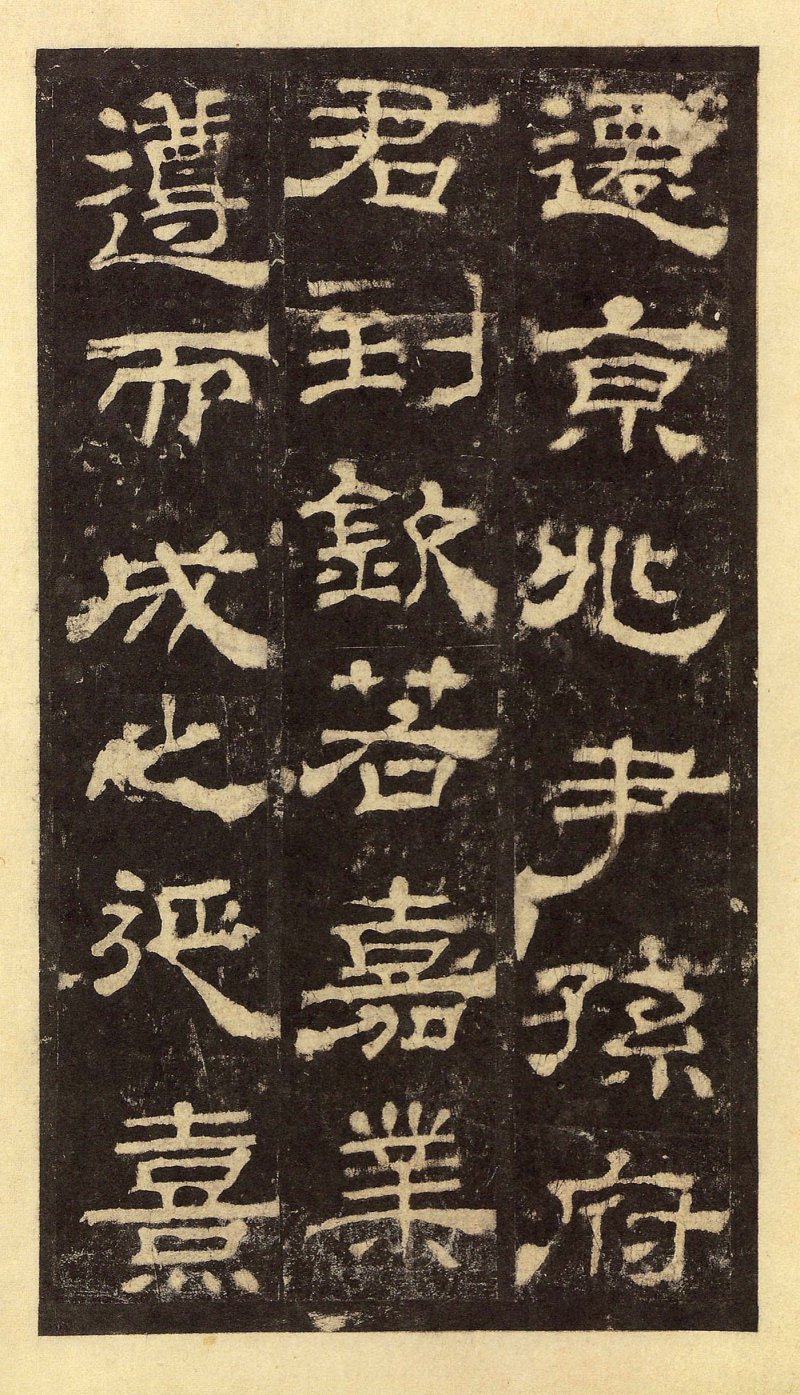 遷京兆尹孫府
君到欽若嘉業
遵而成之延熹